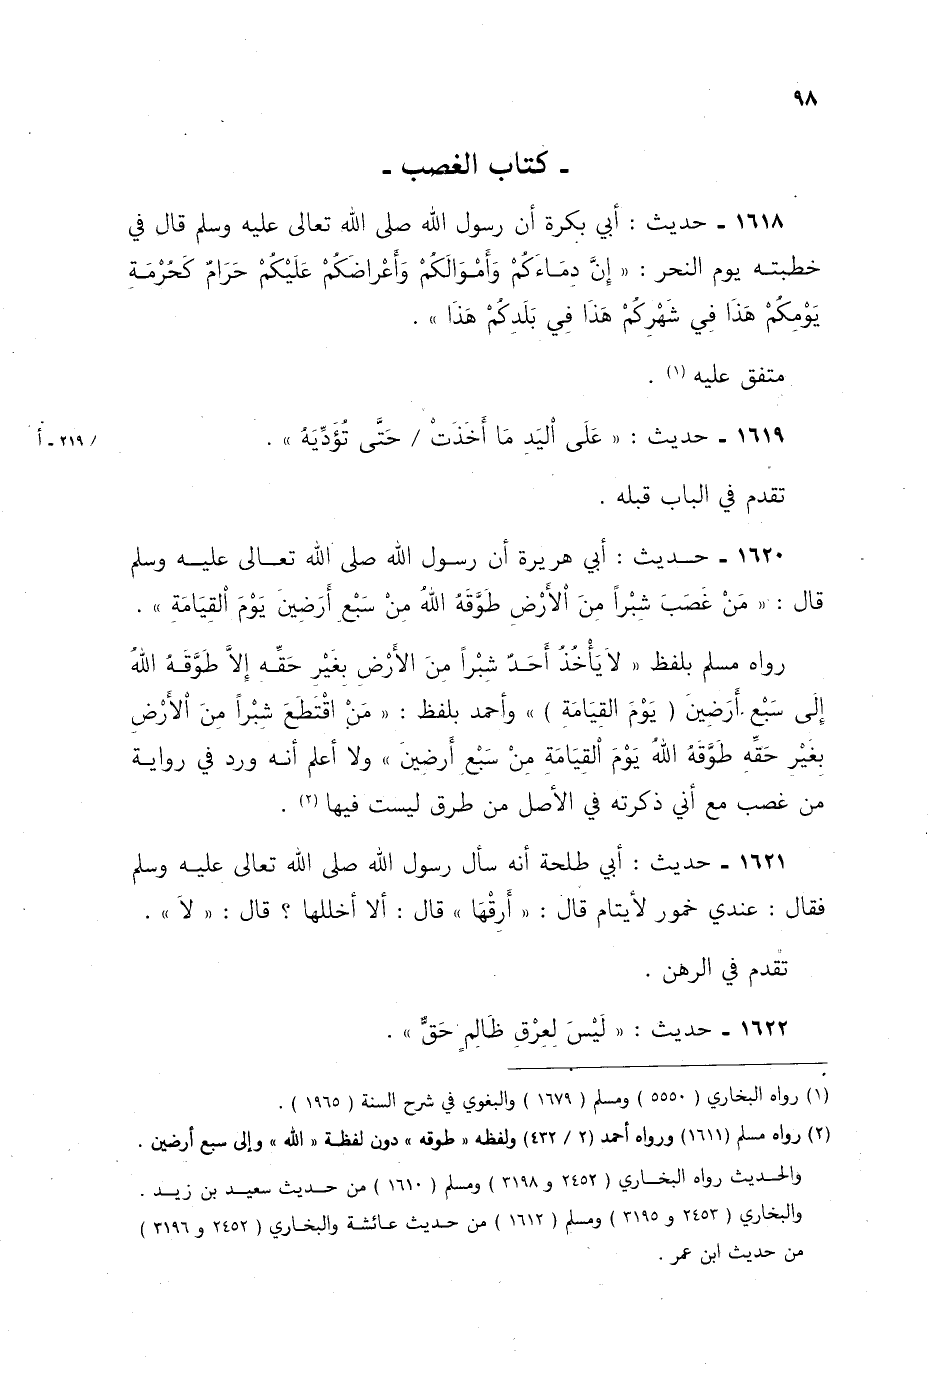 ٩٨
ـ كتاب الغصب ـ
١٦١٨ ـ حديث : أبي بكرة أن رسول الله صلى الله تعالى عليه وسلم قال في
خطبته يوم النحر : « إِنَّ دِمَاءَكُمْ وَأَمْوَالَكُمْ وَأَعْراضَكُمْ عَلَيْكُمْ حَرَامٌ كَحُرْمَةِ
يَوْمِكُمْ هَذَا فِي شَهْرِكُمْ هَذَا فِي بَلَدِكُمْ هَذَا » .
متفق عليه (١) .
١٦١٩ ـ حديث : « عَلَى اْليَدِ مَا أَخَذَتْ / حَتَّى تُؤَدِّيَهُ » .
/ ٢١٩ ـ أ
تقدم في الباب قبله .
١٦٢٠ ـ حــديث : أبي هريرة أن رسـول الله صلى الله تعـالى عليـه وسلم
قال : « مَنْ غَصَبَ شِبْراً مِنَ اْلأَرْضِ طَوَّقَهُ اللهُ مِنْ سَبْعِ أَرَضِينَ يَوْمَ اْلقِيَامَةِ » .
رواه مسلم بلفظ « لاَ يَأْخُذُ أَحَدٌ شِبْراً مِنَ الأَرْضِ بِغَيْرِ حَقِّهِ إِلاَّ طَوَّقَهُ اللهُ
إِلَى سَبْعِ أَرَضِينَ ( يَوْمَ القِيَامَةِ ) » وأحمد بلفظ : « مَنْ اقْتَطَعَ شِبْراً مِنَ اْلأَرْضِ
بِغَيْرِ حَقِّهِ طَوَّقَهُ اللهُ يَوْمَ اْلقِيَامَةِ مِنْ سَبْعِ أَرضِينَ » ولا أعلم أنـه ورد في روايـة
من غصب مع أني ذكرته في الأصل من طرق ليست فيها (٢) .
١٦٢١ ـ حديث : أبي طلحة أنه سأل رسول الله صلى الله تعالى عليـه وسلم
فقال : عندي خمور لأيتام قال : « أَرِقْهَا » قال : ألا أخللها ؟ قال : « لاَ » .
تقدم في الرهن .
١٦٢٢ ـ حديث : « لَيْسَ لِعِرْقِ ظَالِمٍ حَقٌّ » .
(١) رواه البخاري ( ٥٥٥٠ ) ومسلم ( ١٦٧٩ ) والبغوي في شرح السنة ( ١٩٦٥ ) .
(٢) رواه مسلم (١٦١١) ورواه أحمد (٢ / ٤٣٢) ولفظه « طوقه » دون لفظـة « الله » وإلى سبع أرضين .
والحـديث رواه البخـاري ( ٢٤٥٢ و ٣١٩٨ ) ومسلم ( ١٦١٠ ) من حـديث سعيـد بن زيـد .
والبخاري ( ٢٤٥٣ و ٣١٩٥ ) ومسلم ( ١٦١٢ ) من حديث عائشة والبخاري ( ٢٤٥٢ و ٣١٩٦ )
من حديث ابن عمر .